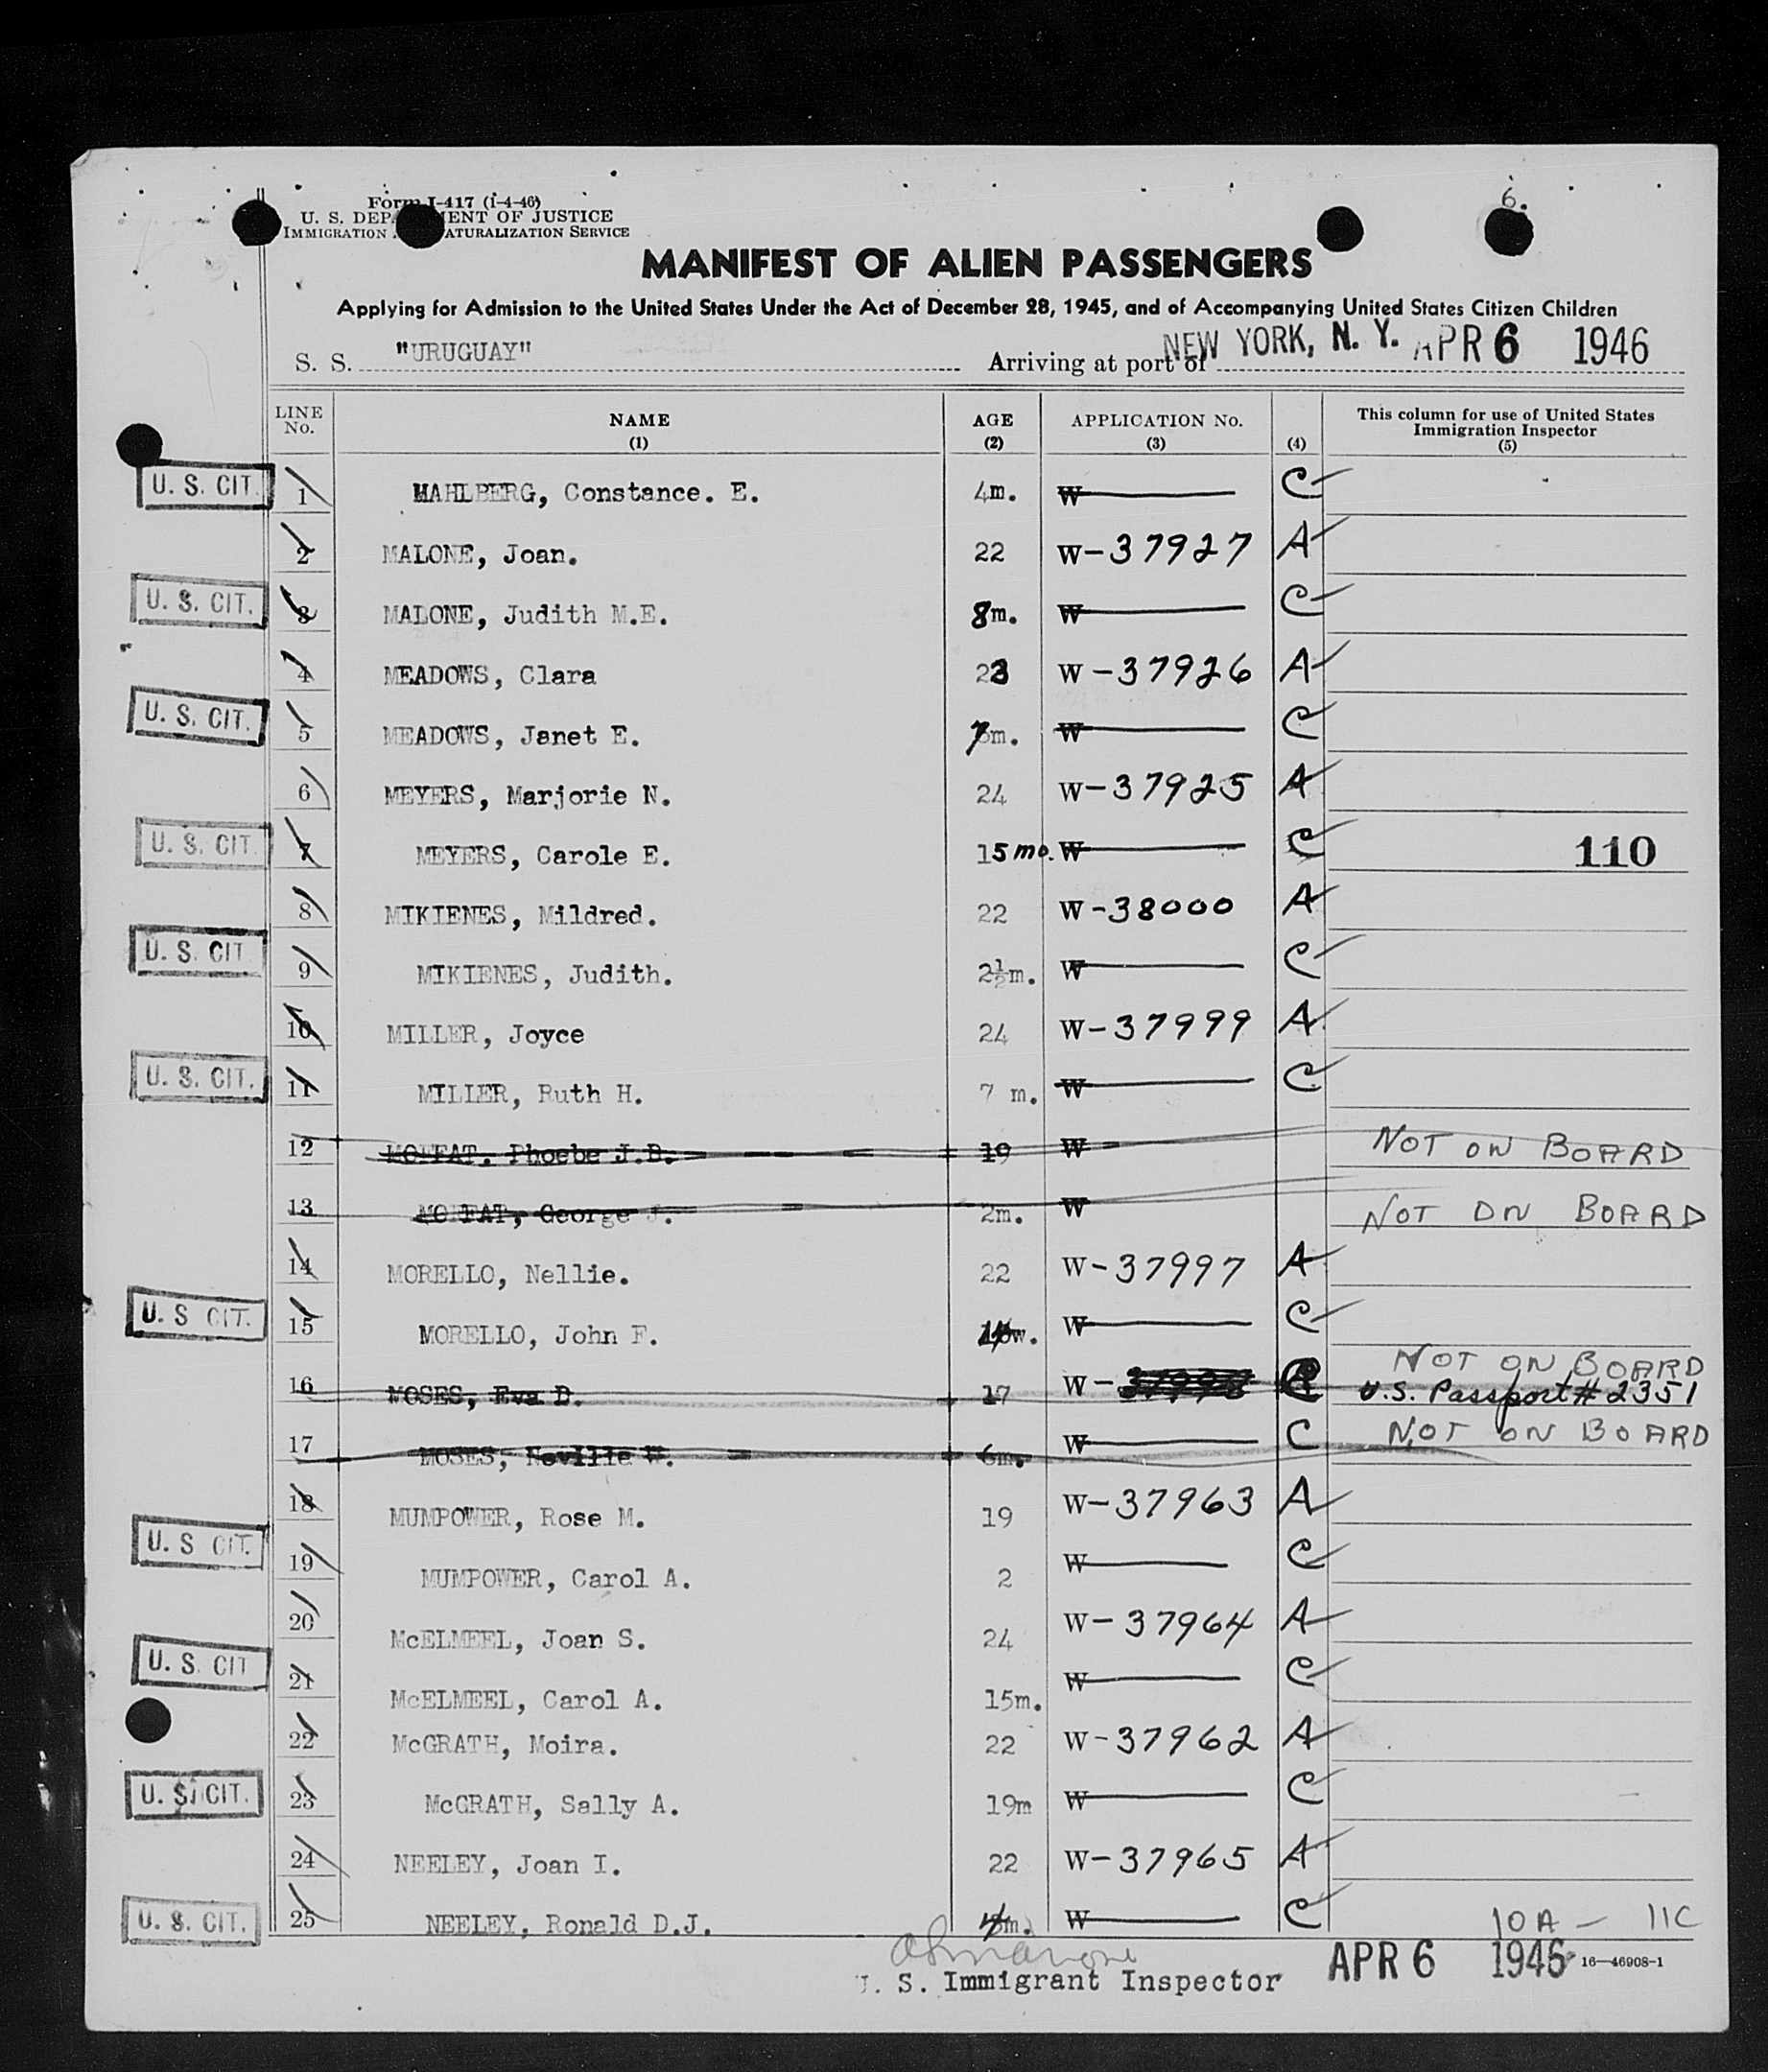 6.
Form I-417 (1-4-46)
U. S. DEPARTMENT OF JUSTICE
IMMIGRATION NATURALIZATION SERVICE
MANIFEST OF ALIEN PASSENGERS
Applying for Admission to the United States Under the Act of December 28, 1945, and of Accompanying United States Citizen Children
S. S. "URUGUAY" Arriving at port of NEW YORK, N. Y. APR 6 1946
LINE No. NAME (1) AGE (2) APPLICATION No. (3) (4) This column for use of United States Immigration Inspector (5)
U. S. CIT. 1 MAHLBERG, Constance. E. 4m. W C
2 MALONE, Joan. 22 W-37927 A
U. S. CIT. 3 MALONE, Judith M.E. 8m. W C
4 MEADOWS, Clara 23 W-37926 A
U. S. CIT. 5 MEADOWS, Janet E. 7m. W C
6 MEYERS, Marjorie N. 24 W-37925 A
U. S. CIT. 7 MEYERS, Carole E. 15 mo. W C 110
8 MIKIENES, Mildred. 22 W-38000 A
U. S. CIT 9 MIKIENES, Judith. 2½m. W C
10 MILLER, Joyce 24 W-37999 A
U. S. CIT. 11 MILLER, Ruth H. 7 m. W C
12 MOFFAT. Phoebe J.B. 19 W NOT ON BOARD
13 MOFFAT, George J. 2m. W NOT ON BOARD
14 MORELLO, Nellie. 22 W-37997 A
U. S CIT. 15 MORELLO, John F. W C
NOT ON BOARD
16 MOSES, Eva D. 17 W- U.S. Passport # 2351
17 MOSES, Neville W. 6m. W C NOT ON BOARD
18 MUMPOWER, Rose M. 19 W-37963 A
U. S CIT. 19 MUMPOWER, Carol A. 2 W C
20 McELMEEL, Joan S. 24 W-37964 A
U. S. CIT 21 McELMEEL, Carol A. 15m. W C
22 McGRATH, Moira. 22 W-37962 A
U. S. CIT. 23 McGRATH, Sally A. 19m W C
24 NEELEY, Joan I. 22 W-37965 A
U. S. CIT. 25 NEELEY, Ronald D.J. W C 10A - 11C
U. S. Immigrant Inspector APR 6 1946 16—46908-1